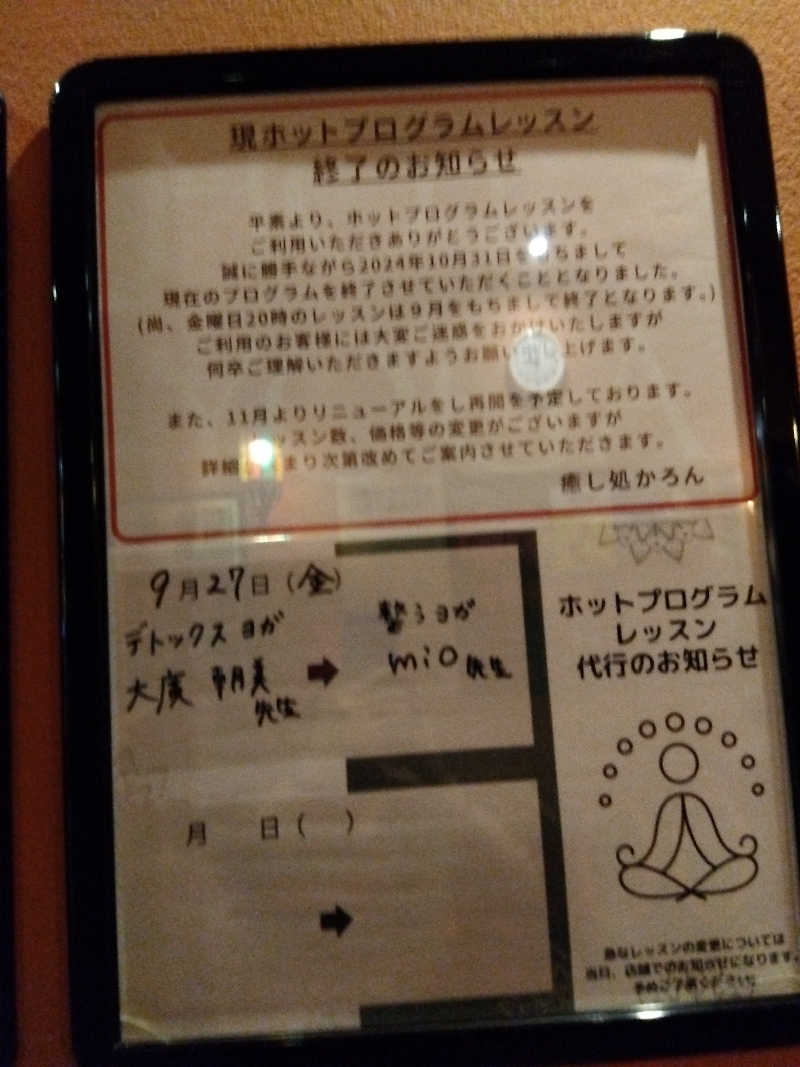 現ホットプログラムレッスン
終了のお知らせ
平素より、ホットプログラムレッスンを
ご利用いただきありがとうございます。
誠に勝手ながら2024年10月31日をもちまして
現在のプログラムを終了させていただくこととなりました。
(尚、金曜日20時のレッスンは9月をもちまして終了となります。)
ご利用のお客様には大変ご迷惑をおかけいたしますが
何卒ご理解いただきますようお願い上げます。
また、11月よりリニューアルをし再開を予定しております。
ッスン数、価格等の変更がございますが
詳細まり次第改めてご案内させていただきます。
癒し処かろん
9月27日(金)
デトックスヨガ
大廣 朝美
先生
➡
整うヨガ
mio先生
月 日( )
➡
ホットプログラム
レッスン
代行のお知らせ
急なレッスンの変更については
当日、店舗でのお知らせになります。
予めご了承ください